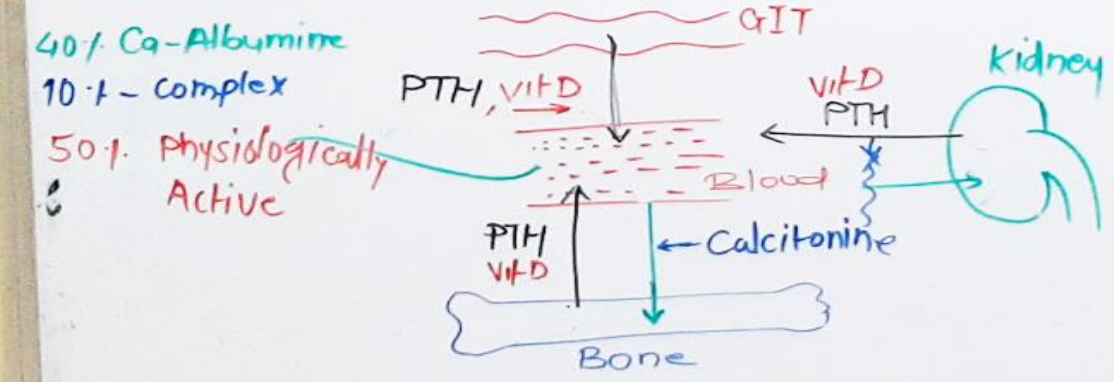 40% Ca-Albumine
10% - Complex
50% Physiologically
Active
GIT
PTH, Vit D
Blood
Vit D
PTH
Kidney
PTH
Vit D
Calcitonine
Bone